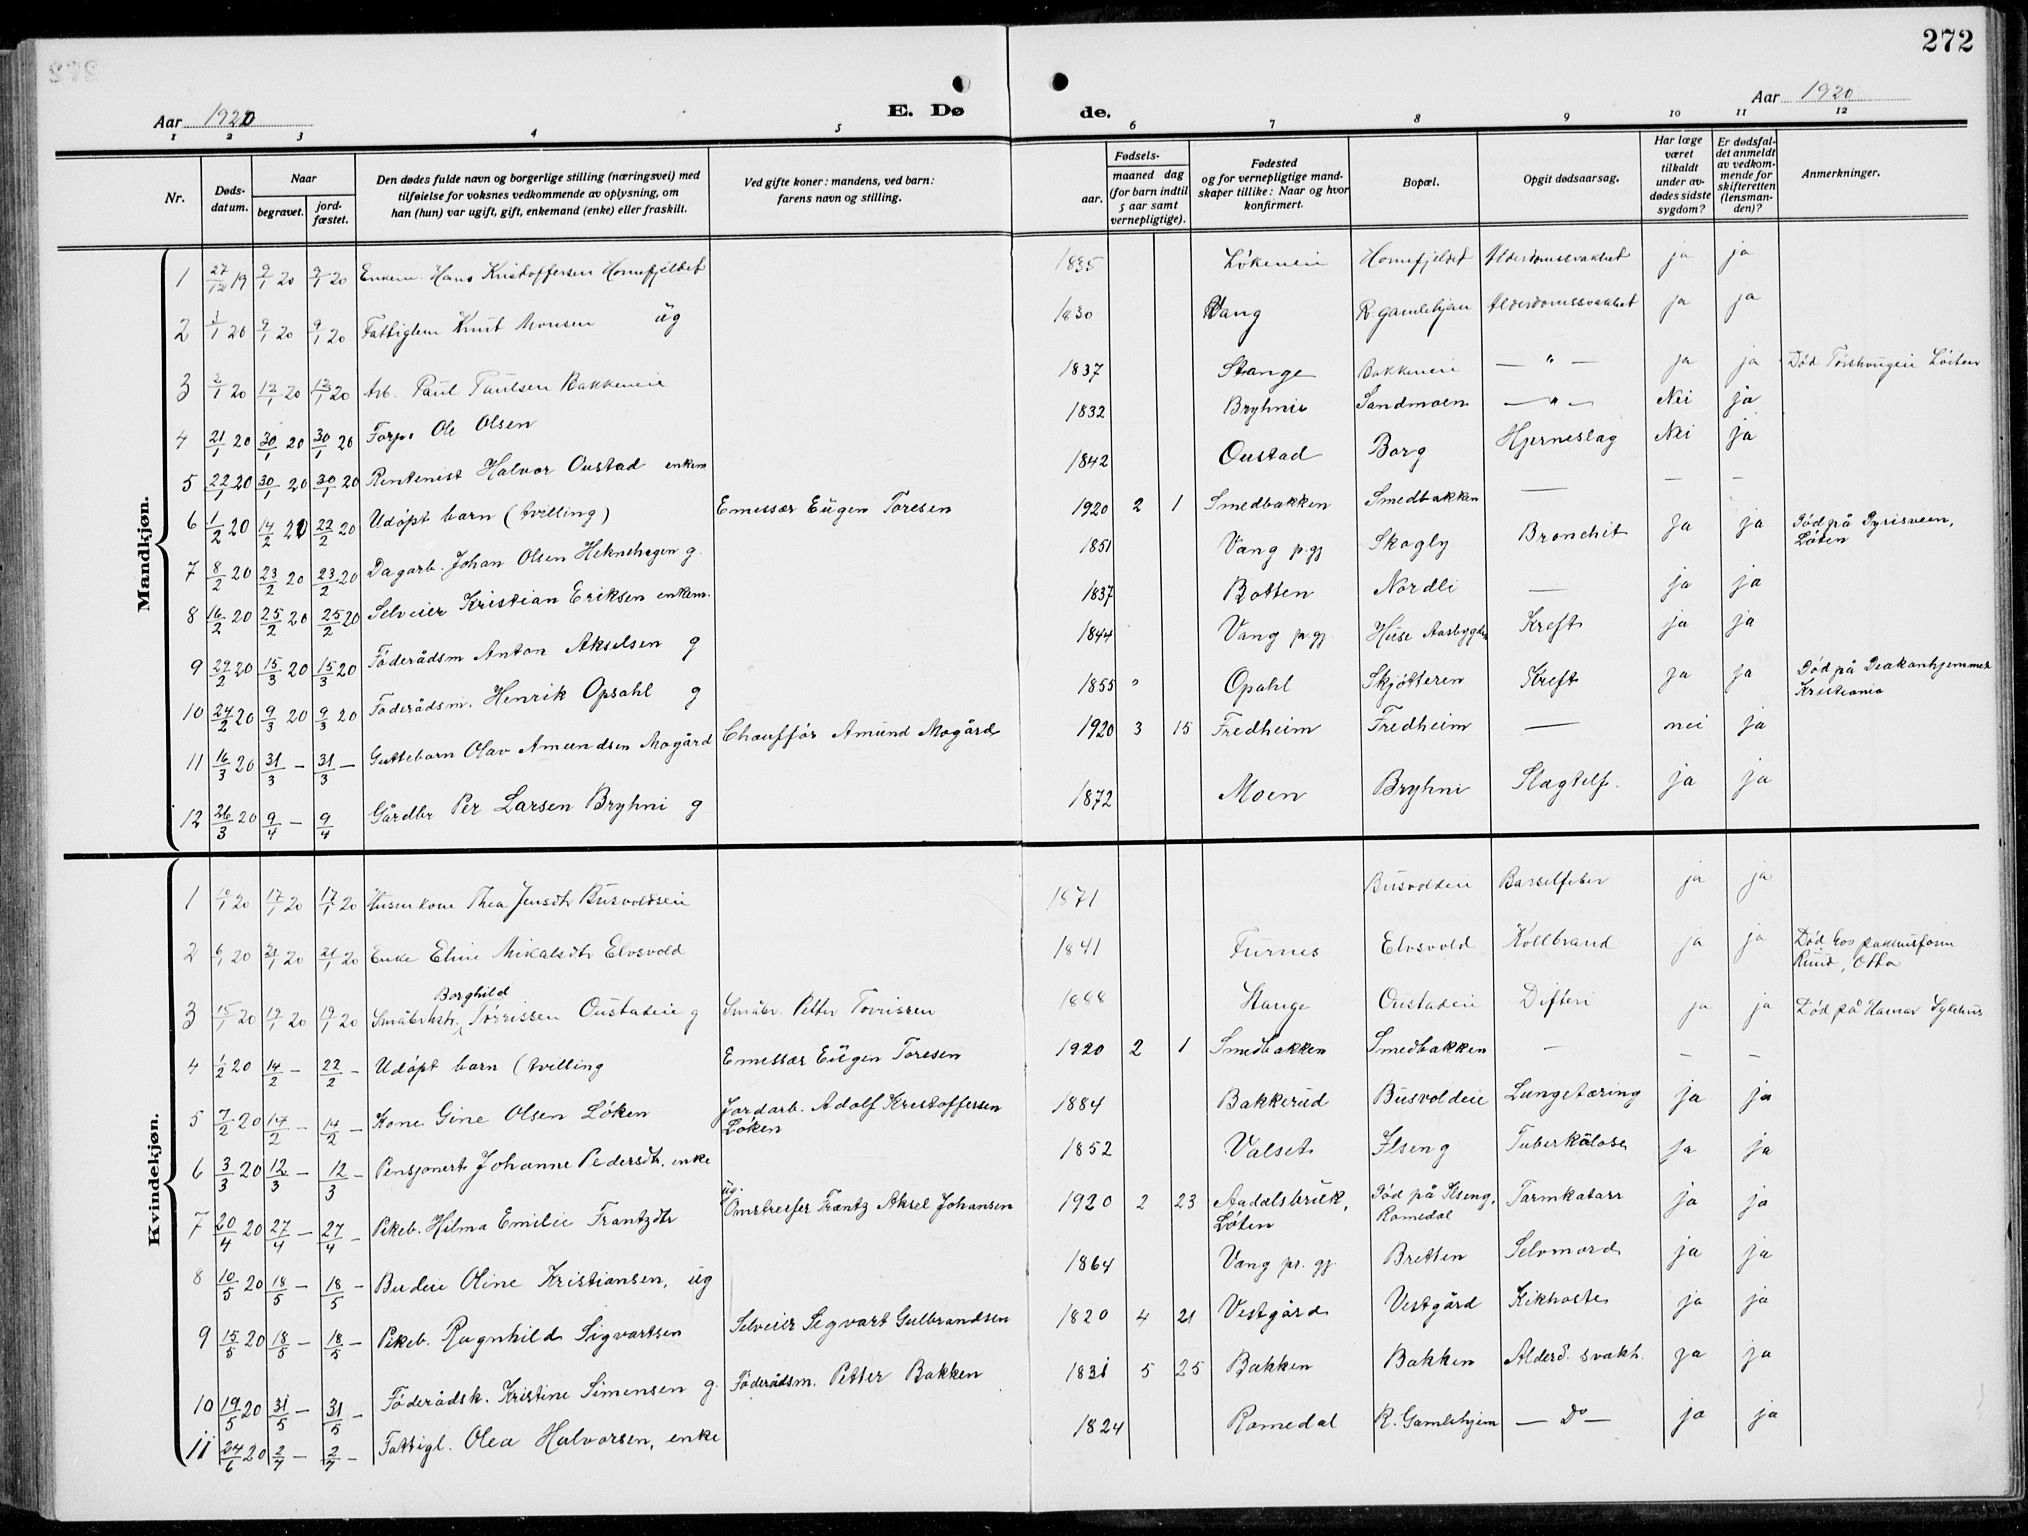 272
Aar 1920
E. Dø de.
Aar 1920
1 2 3 4 5 6 7 8 9 10 11 12
Nr.
Døds-datum.
Naar
begravet. jord-fæstet.
Den dødes fulde navn og borgerlige stilling (næringsvei) med
tilføielse for voksnes vedkommende av oplysning, om
han (hun) var ugift, gift, enkemand (enke) eller fraskilt.
Ved gifte koner: mandens, ved barn:
farens navn og stilling.
Fødsels-
aar. maaned dag
(for barn indtil
5 aar samt
vernepligtige).
Fødested
og for vernepligtige mand-
skaper tillike: Naar og hvor
konfirmert.
Bopæl.
Opgit dødsaarsag.
Har læge
været
tilkaldt
under av-
dødes sidste
sygdom?
Er dødsfal-
det anmeldt
av vedkom-
mende for
skifteretten
(lensman-
den)?
Anmerkninger.
Mandkjøn.
1 27/12 19 9/1 20 9/1 20 Enkem. Hans Kristoffersen Hornefjeldet 1835 Løkeneie Hornefjeldet Alderdomssvakhet ja ja
2 1/1 20 9/1 20 9/1 20 Fattiglem Knut Monsen ug 1830 Vang R. gamlehjem Alderdomssvakhet ja ja
3 2/1 20 12/1 20 12/1 20 Arb. Paul Paulsen Bakkeneie 1837 Stange Bakkeneie — " — ja ja Død Løiten
4 21/1 20 30/1 20 30/1 20 Forp. Ole Olsen 1832 Bryhnie Sandmoen — " — Nei ja
5 22/1 20 30/1 20 30/1 20 Rentenist Halvor Oustad enkem 1842 Oustad Borg Hjerneslag Nei ja
6 1/2 20 14/2 20 22/2 20 Udöpt barn (tvilling) Emessær Eugen Toresen 1920 2 1 Smedbakken Smedbakken — — —
7 8/2 20 23/2 20 23/2 20 Dagarb. Johan Olsen Heknehagen g. 1851 Vang p.gj Skogly Bronchit ja ja Död på Pyrisveen,
Løten
8 16/2 20 25/2 20 25/2 20 Selveier Kristian Eriksen enkem. 1837 Botten Nordli — ja ja
9 29/2 20 15/3 20 15/3 20 Föderådsm Anton Akselsen g 1844 Vang p.gj. Huse Aasbygda Kreft ja ja
10 24/2 20 9/3 20 9/3 20 Föderådsm. Henrik Opsahl g 1855 Opahl Skjøtteren Kreft ja ja Död på Deakonhjemmet
Kristiania
11 16/3 20 31/3 — 31/3 — Guttebarn Olav Amundsen Mogård Chauffør Amund Mogård 1920 3 15 Fredheim Fredheim — nei ja
12 26/3 20 9/4 — 9/4 Gårdbr Per Larsen Bryhni g 1872 Moen Bryhni Slagtilf. ja ja
Kvindekjøn.
1 /1 20 17/1 20 17/1 20 Husm kone Thea Jensdtr Busvoldseie 1871 Busvoldeie Barselfeber ja ja
2 6/1 20 21/1 20 21/1 20 Enke Eline Mikalsdtr Elvsvold 1841 Furnes Elvsvold Kollbrand ja ja Död hos pakhusform
Ruud, Otta
3 15/1 20 19/1 20 19/1 20 Småbrkstr. Borghild Tørrissen Oustadeie g Småbr. Petter Torrissen 1888 Stange Oustadeie Difteri ja ja Död på Hamar Sykehus
4 1/2 20 14/2 — 22/2 — Udöpt barn (tvilling Emessær Eugen Toresen 1920 2 1 Smedbakken Smedbakken — — —
5 7/2 20 14/2 — 14/2 — Kone Gine Olsen Løken Jordarb. Adolf Kristoffersen
Løken 1884 Bakkerud Busvoldeie Lungetæring ja ja
6 3/3 20 12/3 — 12/3 — Pensjonert Johanne Pedersdtr. enke 1852 Valset Ilseng Tuberkulose ja ja
7 20/4 20 27/4 — 27/4 — Pikeb. Hilma Emilie Frantzdtr ug. Omstreifer Frantz Aksel Johansen 1920 2 23 Aadalsbruk,
Løten Död på Ilseng,
Romedal Tarmkatarr ja ja
8 10/5 20 18/5 — 18/5 — Budeie Oline Kristiansen, ug 1864 Vang pr. gj. Bretten Selvmord ja ja
9 15/5 20 18/5 — 18/5 — Pikeb. Ragnhild Sigvartsen Selveier Sigvart Gulbrandsen 1820 4 21 Vestgård Vestgård Kikhoste ja ja
10 19/5 20 31/5 — 31/5 — Föderådsk. Kristine Simensen g. Föderådsm. Petter Bakken 1831 5 25 Bakken Bakken Alderd. svakh. ja ja
11 24/6 20 2/7 — 2/7 — Fattigl. Olea Halvorsen, enke 1824 Romedal R. Gamlehjem — Do — ja ja